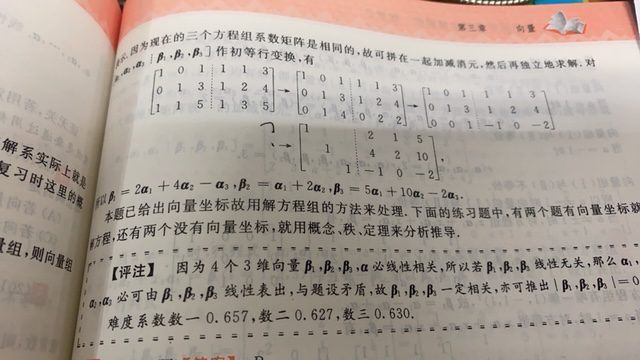 第三章 向量
示, 因为现在的三个方程组系数矩阵是相同的, 故可拼在一起加减消元, 然后再独立地求解. 对
α₂, α₃ ⋮ β₁, β₂, β₃] 作初等行变换, 有
[1 0 1 ⋮ 1 1 3; 0 1 3 ⋮ 1 2 4; 1 1 5 ⋮ 1 3 5] → [1 0 1 1 1 3; 0 1 3 1 2 4; 0 1 4 0 2 2] → [1 0 1 1 1 3; 0 1 3 1 2 4; 0 0 1 -1 0 -2]
→ [1 2 1 5; 1 4 2 10; 1 -1 0 -2],
所以 β₁ = 2α₁ + 4α₂ - α₃, β₂ = α₁ + 2α₂, β₃ = 5α₁ + 10α₂ - 2α₃.
本题已给出向量坐标故用解方程组的方法来处理. 下面的练习题中, 有两个题有向量坐标就
解方程, 还有两个没有向量坐标, 就用概念、秩、定理来分析推导.
【评注】 因为 4 个 3 维向量 β₁, β₂, β₃, α 必线性相关, 所以若 β₁, β₂, β₃ 线性无关, 那么 α₁,
α₂, α₃ 必可由 β₁, β₂, β₃ 线性表出, 与题设矛盾, 故 β₁, β₂, β₃ 一定相关, 亦可推出 | β₁, β₂, β₃ | = 0
难度系数数一 0.657, 数二 0.627, 数三 0.630.
解系实际上就是
复习时这里的概
量组, 则向量组